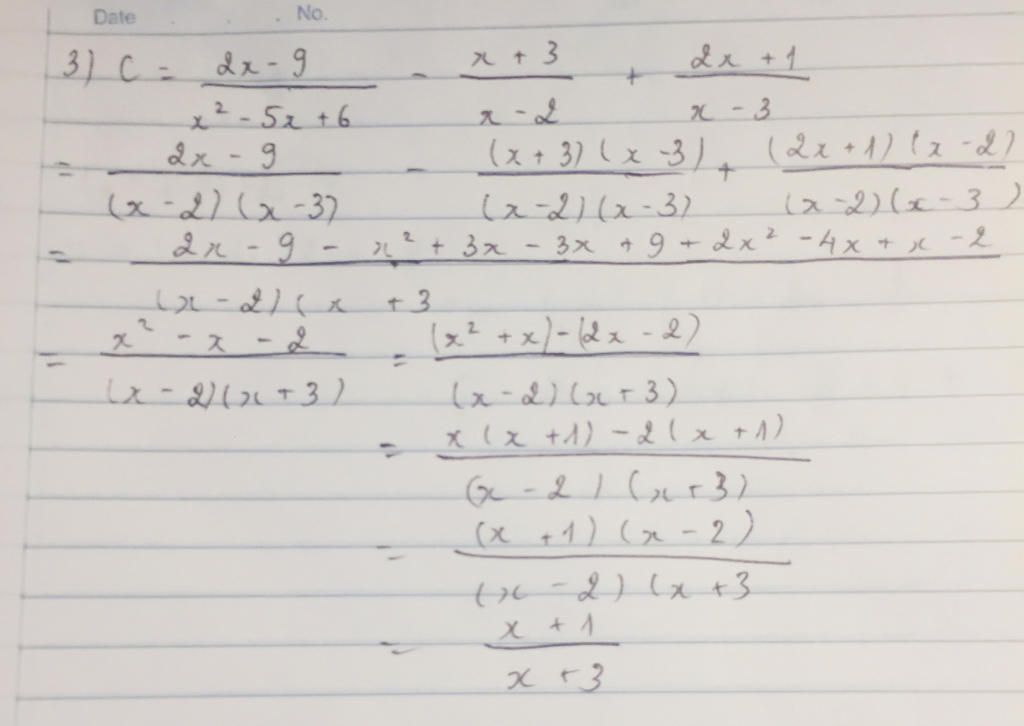 Date . . . No.
3) C = (2x - 9)/(x² - 5x + 6) - (x + 3)/(x - 2) + (2x + 1)/(x - 3)
= (2x - 9)/((x - 2)(x - 3)) - ((x + 3)(x - 3))/((x - 2)(x - 3)) + ((2x + 1)(x - 2))/((x - 2)(x - 3))
= (2x - 9 - x² + 3x - 3x + 9 + 2x² - 4x + x - 2)/((x - 2)(x + 3
= (x² - x - 2)/((x - 2)(x + 3)) = ((x² + x) - (2x - 2))/((x - 2)(x + 3))
= (x(x + 1) - 2(x + 1))/((x - 2)(x + 3))
= ((x + 1)(x - 2))/((x - 2)(x + 3
= (x + 1)/(x + 3)